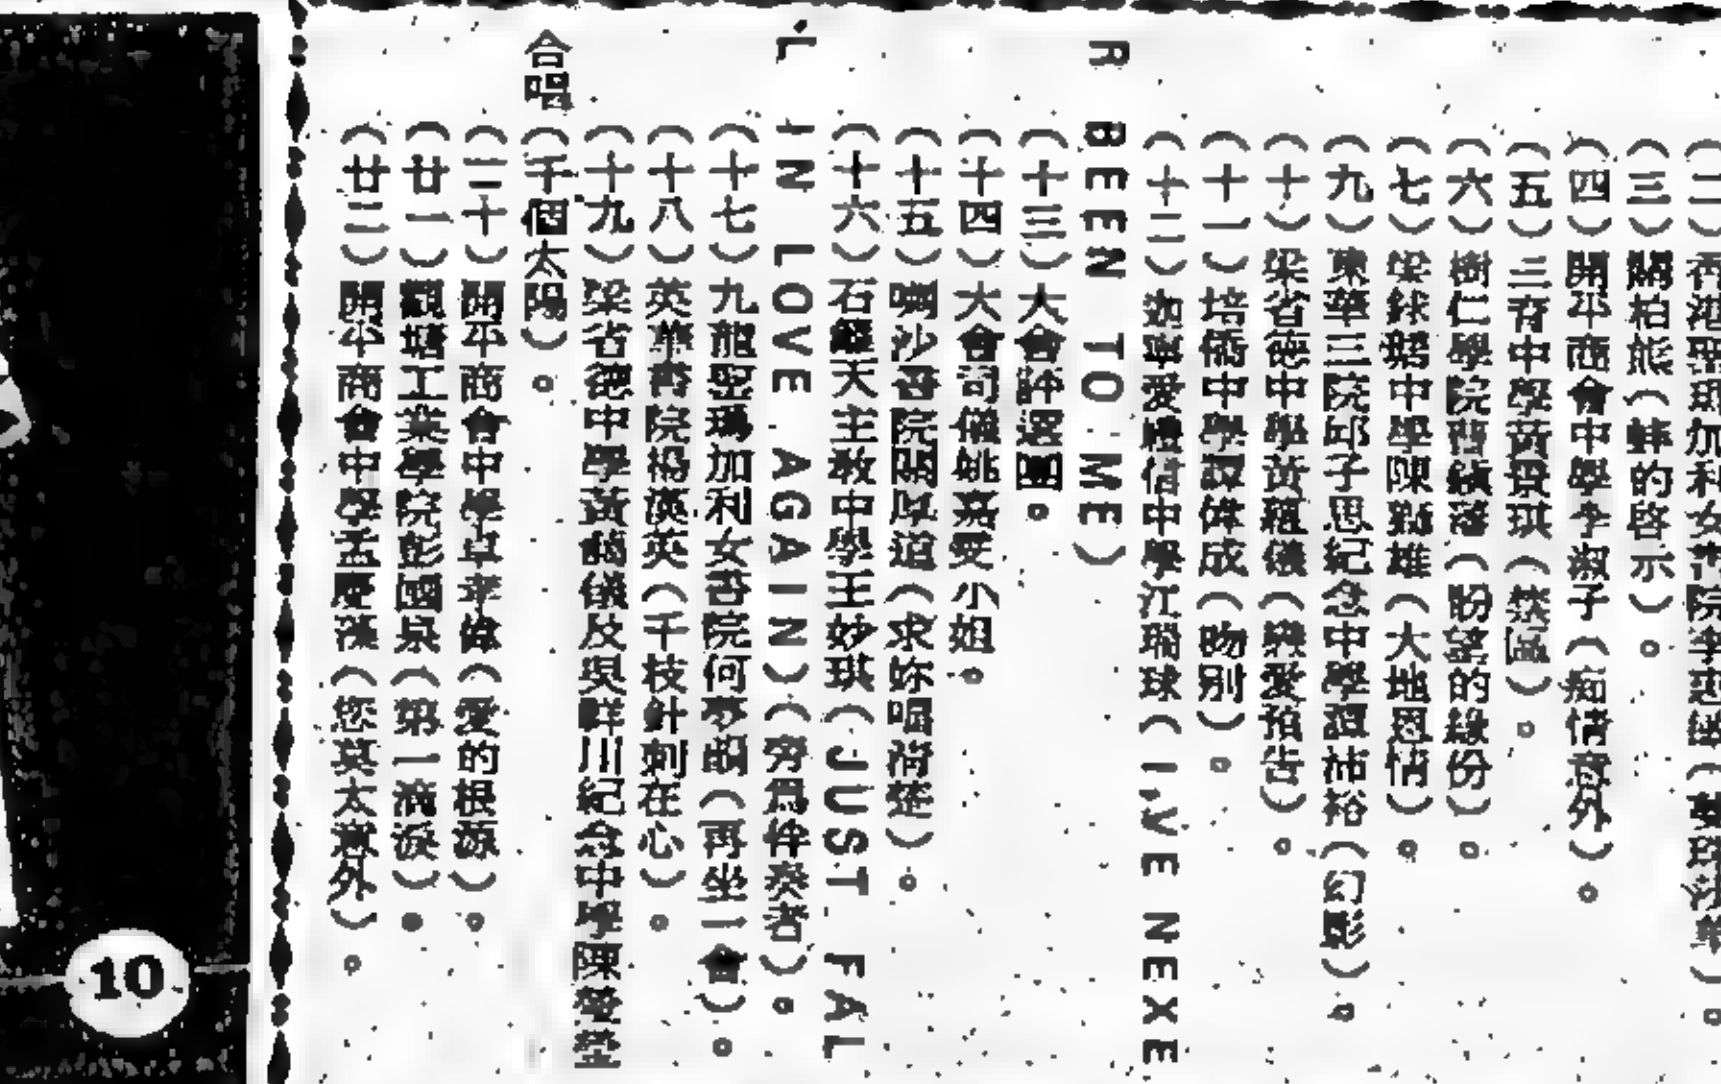 (二)香港聖瑪加利女書院
(三)關柏熊(蚌的啓示)。
(四)開平商會中學李淑子(痴情意外)。
(五)三育中學黃
(六)樹仁學院曹 (盼望的緣份)。
(七)梁 中學陳 雄(大地恩情)。
(九)東華三院邱子思紀念中學譚祐裕(幻影)。
(十)梁省德中學黃 儀(興愛拍咭)。
(十一)培僑中學譚偉成(吻別)。
(十二)迦 愛禮信中學江瑞球(I,VE NEXE
R BEEN TO ME)
(十三)大會評選團。
(十四)大會司儀姚嘉雯小姐。
(十五)喇沙書院關厚道(求妳唱荷 )。
(十六)石籬天主教中學王妙琪(JUST FAL
L IN LOVE AGAIN)(旁爲伴奏者)。
(十七)九龍聖瑪加利女書院何 (再坐一會)。
(十八)英華書院楊漢英(千枝針刺在心)。
(十九)梁省德中學黃 儀及吳 川紀念中學陳
合唱(千個太陽)。
(二十)開平商會中學卓 偉(愛的根源)。
(廿一)觀塘工業學院彭國 (第一滴淚)。
(廿二)開平商會中學孟慶 (您莫太意外)。
10